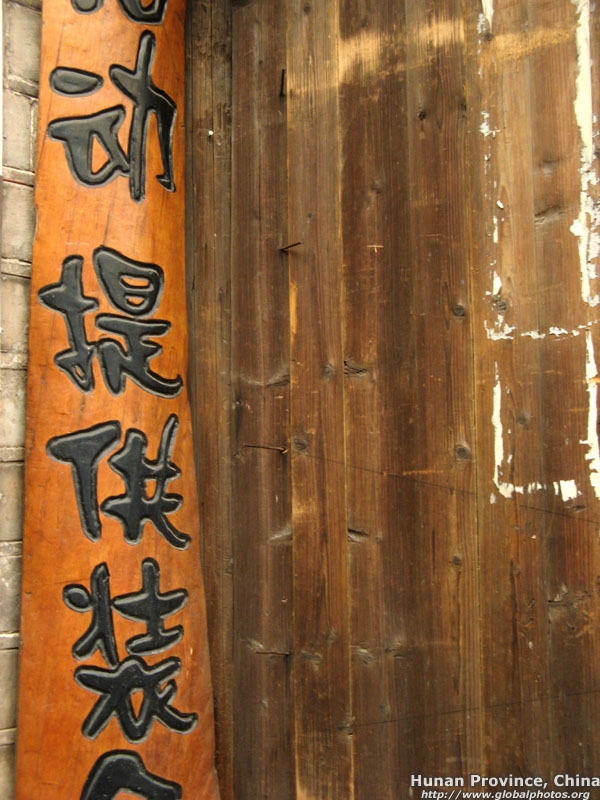 提供装
Hunan Province, China
http://www.globalphotos.org